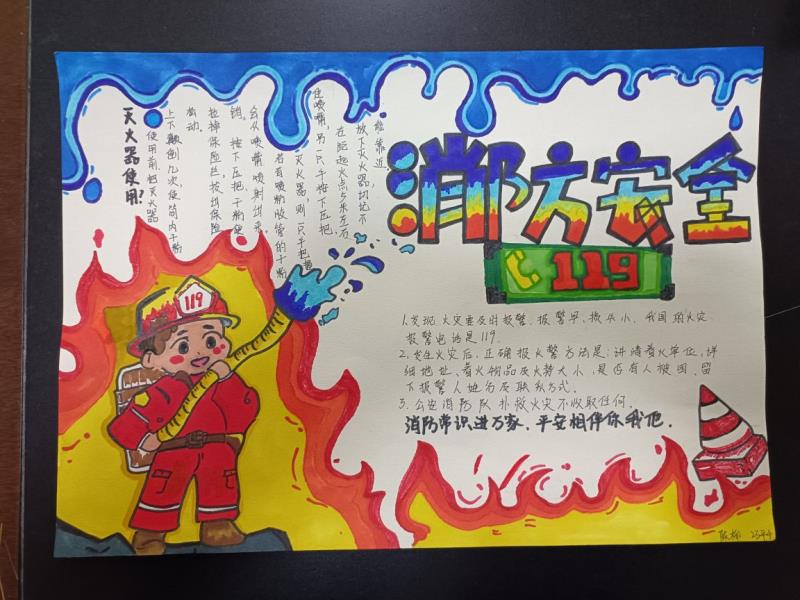 消防安全
119
1.发现火灾要及时报警，报警早，损失小，我国的火灾
报警电话是119.
2.发生火灾后，正确报火警方法是：讲清着火单位，详
细地址，着火物品及火势大小，是否有人被困，留
下报警人姓名及联系方式.
3.公安消防队扑救火灾不收取任何.
消防常识进万家，平安相伴你我他.
灭火器使用？
使用前把灭火器
上下颠倒几次，使筒内干粉
松动.
拉掉保险丝，拔出保险
销，按下压把，干粉便
会从喷嘴喷射出来
若有喷粉胶管的干粉
灭火器，则一只手把握
住喷嘴，另一只手按下压把，
在距起火点5米左右
放下灭火器，切记不
能靠近.
119